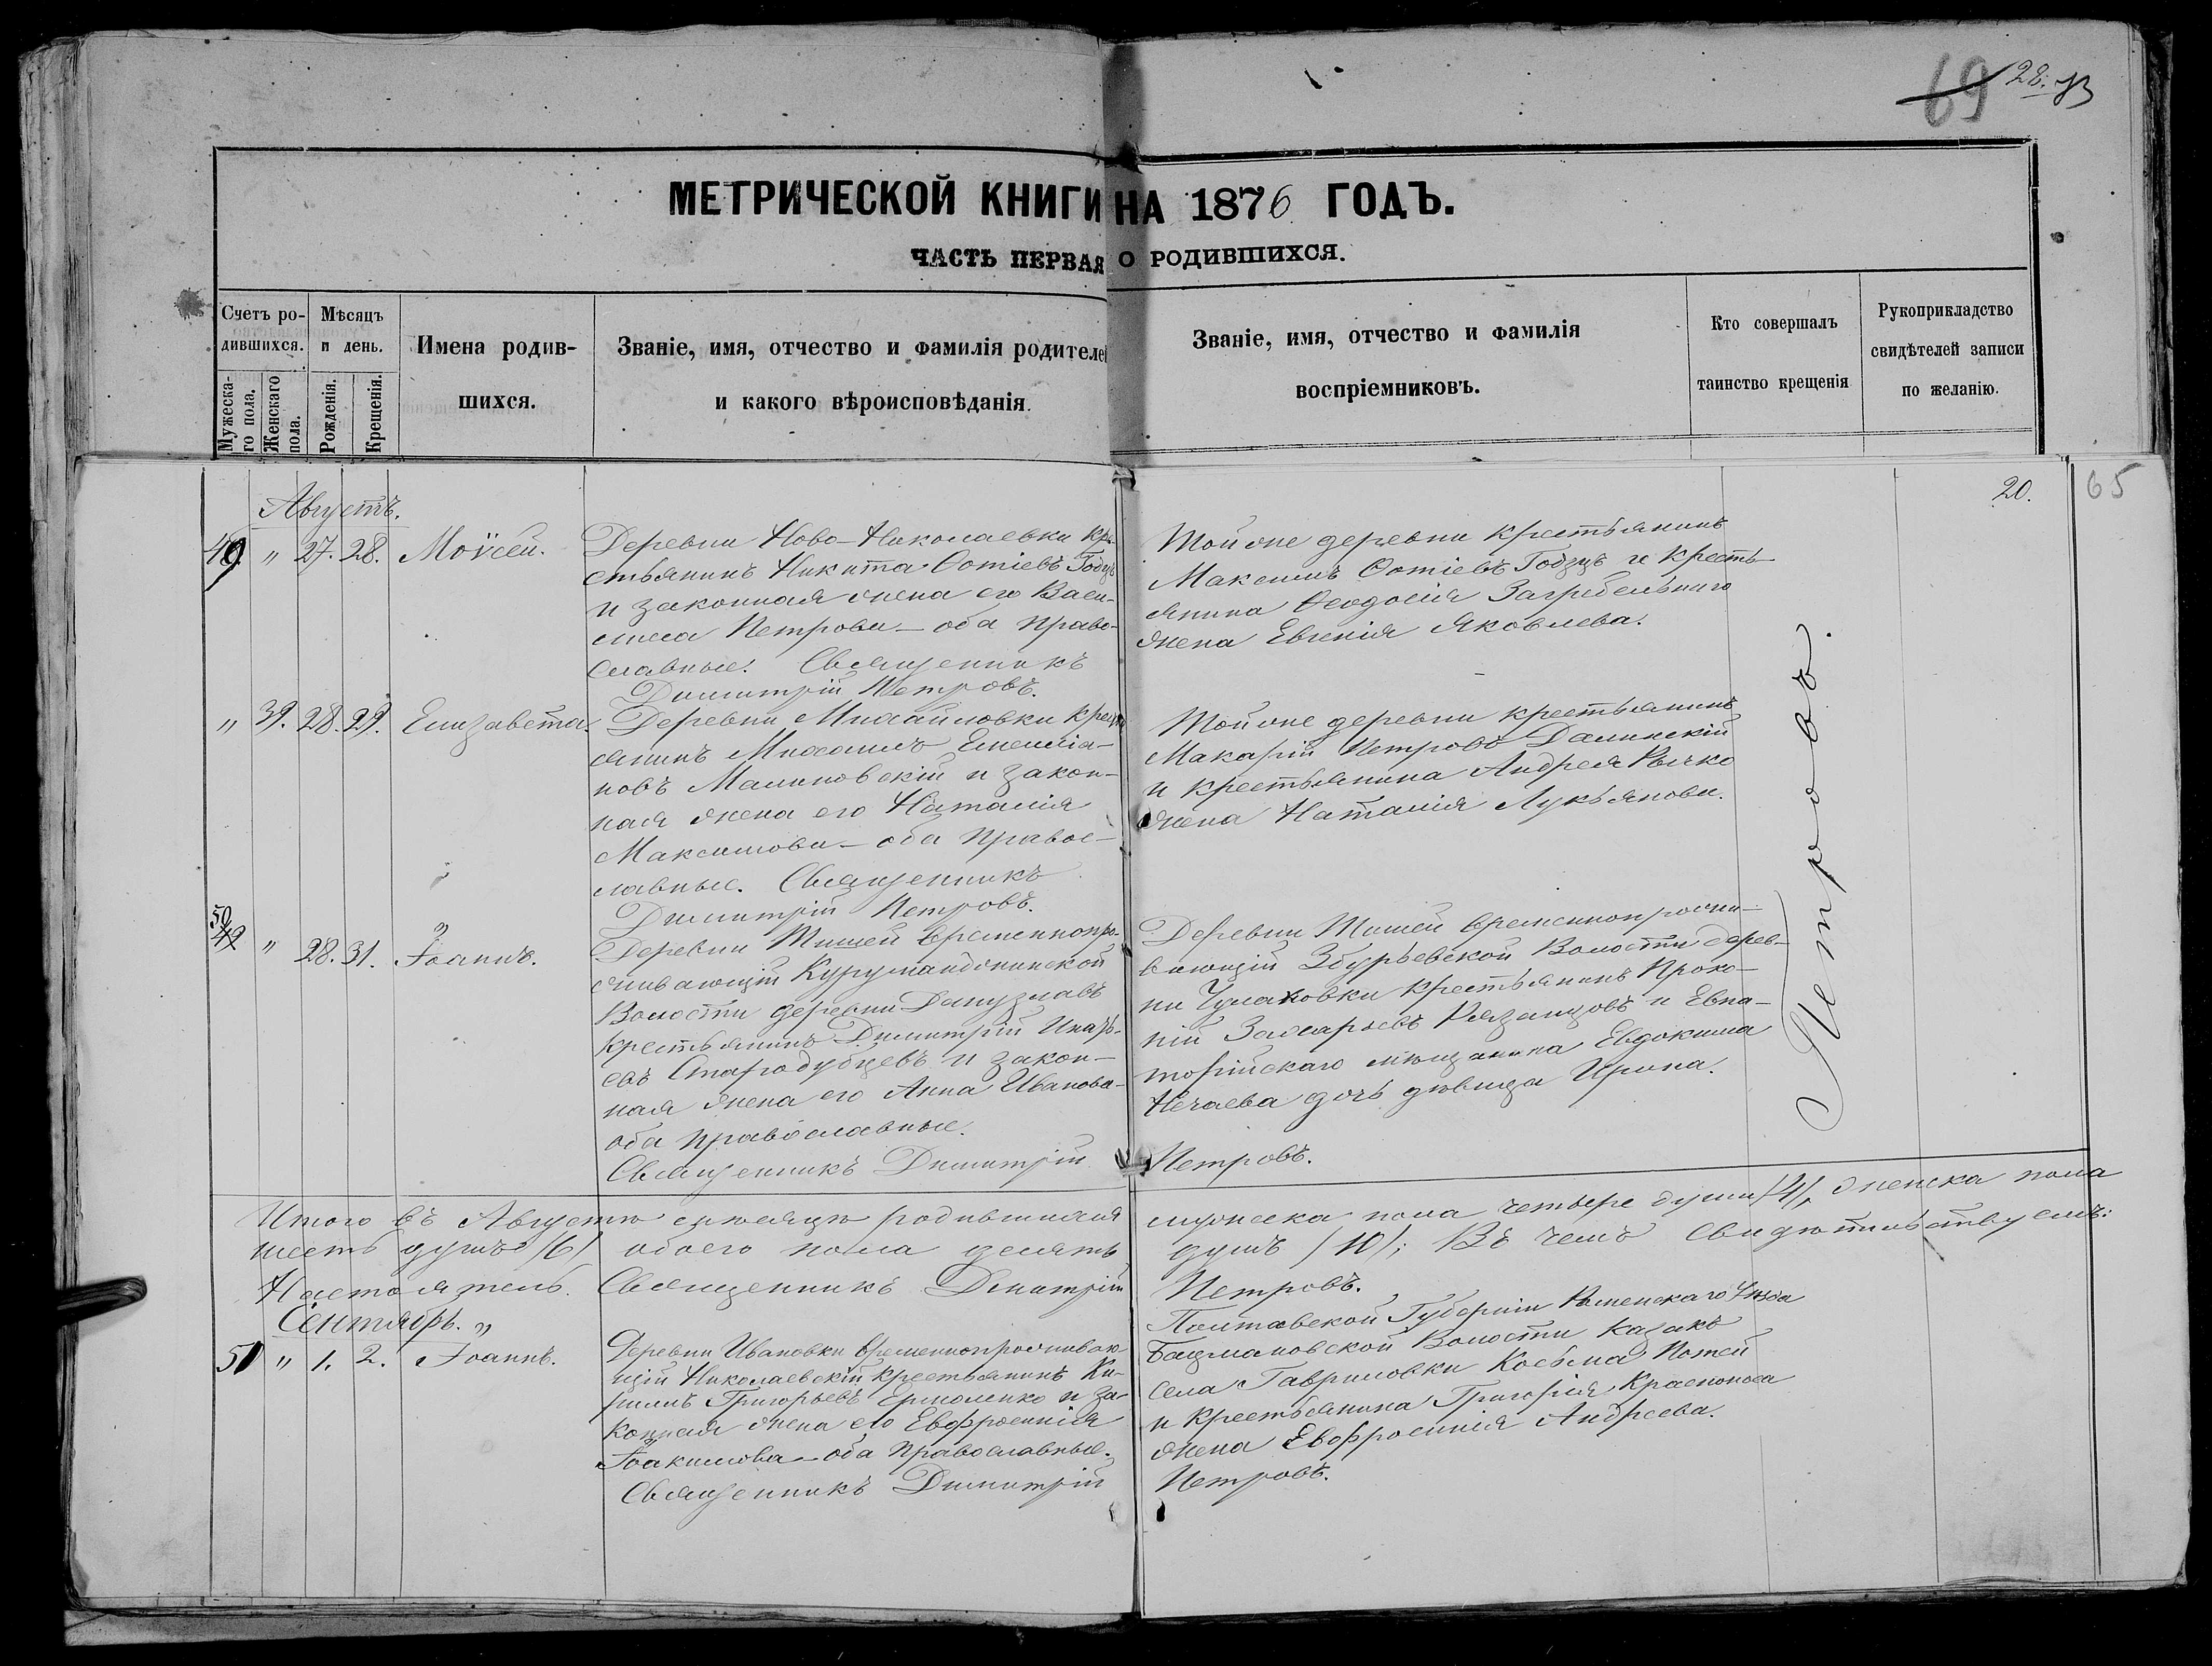 69 28.
МЕТРИЧЕСКОЙ КНИГИ НА 1876 ГОДЪ.
ЧАСТЬ ПЕРВАЯ О РОДИВШИХСЯ.
Счетъ ро-
дившихся.
Мужеска-
го пола.
Женскаго
пола.
Мѣсяцъ
и день.
Рожденія.
Крещенія.
Имена родив-
шихся.
Званіе, имя, отчество и фамилія родителей
и какого вѣроисповѣданія.
Званіе, имя, отчество и фамилія
воспріемниковъ.
Кто совершалъ
таинство крещенія
Рукоприкладство
свидѣтелей записи
по желанію.
20. 65
Августъ.
49 " 27. 28. Моѵсей.
Деревни Ново-Николаевки кре-
стьянинъ Никита Фотіевъ
и законная жена его Васи-
лисса Петрова – оба право-
славные. Священникъ
Димитрій Петровъ.
Той же деревни крестьянинъ
Максимъ Фотіевъ и кресть-
янина Феодосія Загребельнаго
жена Евгенія Яковлева.
" 39. 28. 29. Елизавета.
Деревни Михайловки крест
янинъ Михаилъ Емеліа-
новъ Малиновскій и закон-
ная жена его Наталія
Максимова – оба правос-
лавные. Священникъ
Димитрій Петровъ.
Той же деревни крестьянинъ
Макарій Петровъ Далинскій
и крестьянина Андрея Рычко
жена Наталія Лукьянова.
50 " 28. 31. Іоаннъ.
Деревни Тишей временнопро-
живающій Курумандонинской
Волости деревни Данузлавъ
крестьянинъ Димитрій
Стародубцевъ и закон-
ная жена его Анна Иванова –
оба православные.
Священникъ Димитрій Петровъ.
Деревни Тишей временнопрожи-
вающій Збурьевской Волости дерев-
ни Чулаковки крестьянинъ Проко-
пій Захарьевъ Рязанцовъ и Евпа-
торійскаго мѣщанина Евдокима
Нечаева дочь дѣвица Ирина.
Петровъ.
Итого въ Августѣ мѣсяцѣ родившихся мужеска пола четыре души /4/, женска пола
шесть душъ /6/ обоего пола десять душъ /10/; Въ чемъ свидѣтельствуемъ:
Настоятель Священникъ Димитрій Петровъ.
Сентябрь. "
51 " 1. 2. Іоаннъ.
Деревни Ивановки временнопроживаю-
щій Николаевскій крестьянинъ Ки-
риллъ Григорьевъ Ермоленко и за-
конная жена его Евфросинія
Іоакимова – оба православные.
Священникъ Димитрій Петровъ.
Полтавской Губерніи Роменскаго Уѣзда
Бацмановской Волости казакъ
села Гавриловки Косьма Потей
и крестьянина Григорія Красноноса
жена Евфросинія Андреева.